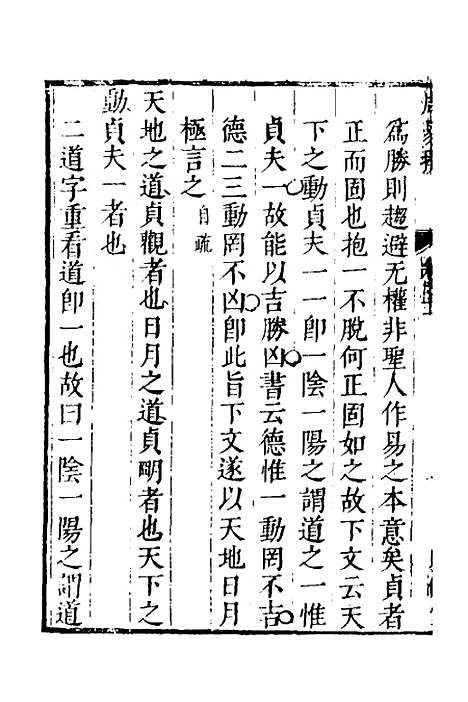 爲勝則趨避无權非聖人作易之本意矣貞者
正而固也抱一不脫何正固如之故下文云天
下之動貞夫一一卽一陰一陽之謂道之一惟
貞夫一故能以吉勝凶書云德惟一動罔不吉
德二三動罔不凶卽此旨下文遂以天地日月
極言之 自疏
天地之道貞觀者也日月之道貞明者也天下之
動貞夫一者也
二道字重看道卽一也故曰一陰一陽之謂道